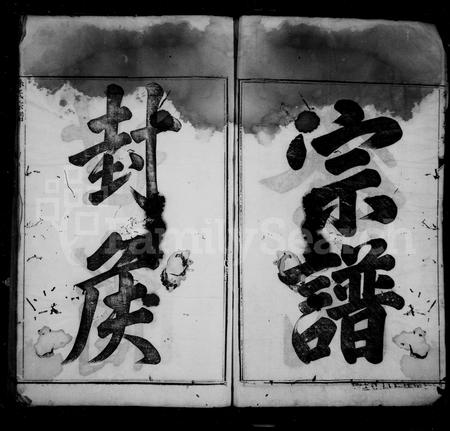 宗譜
封侯
FamilySearch